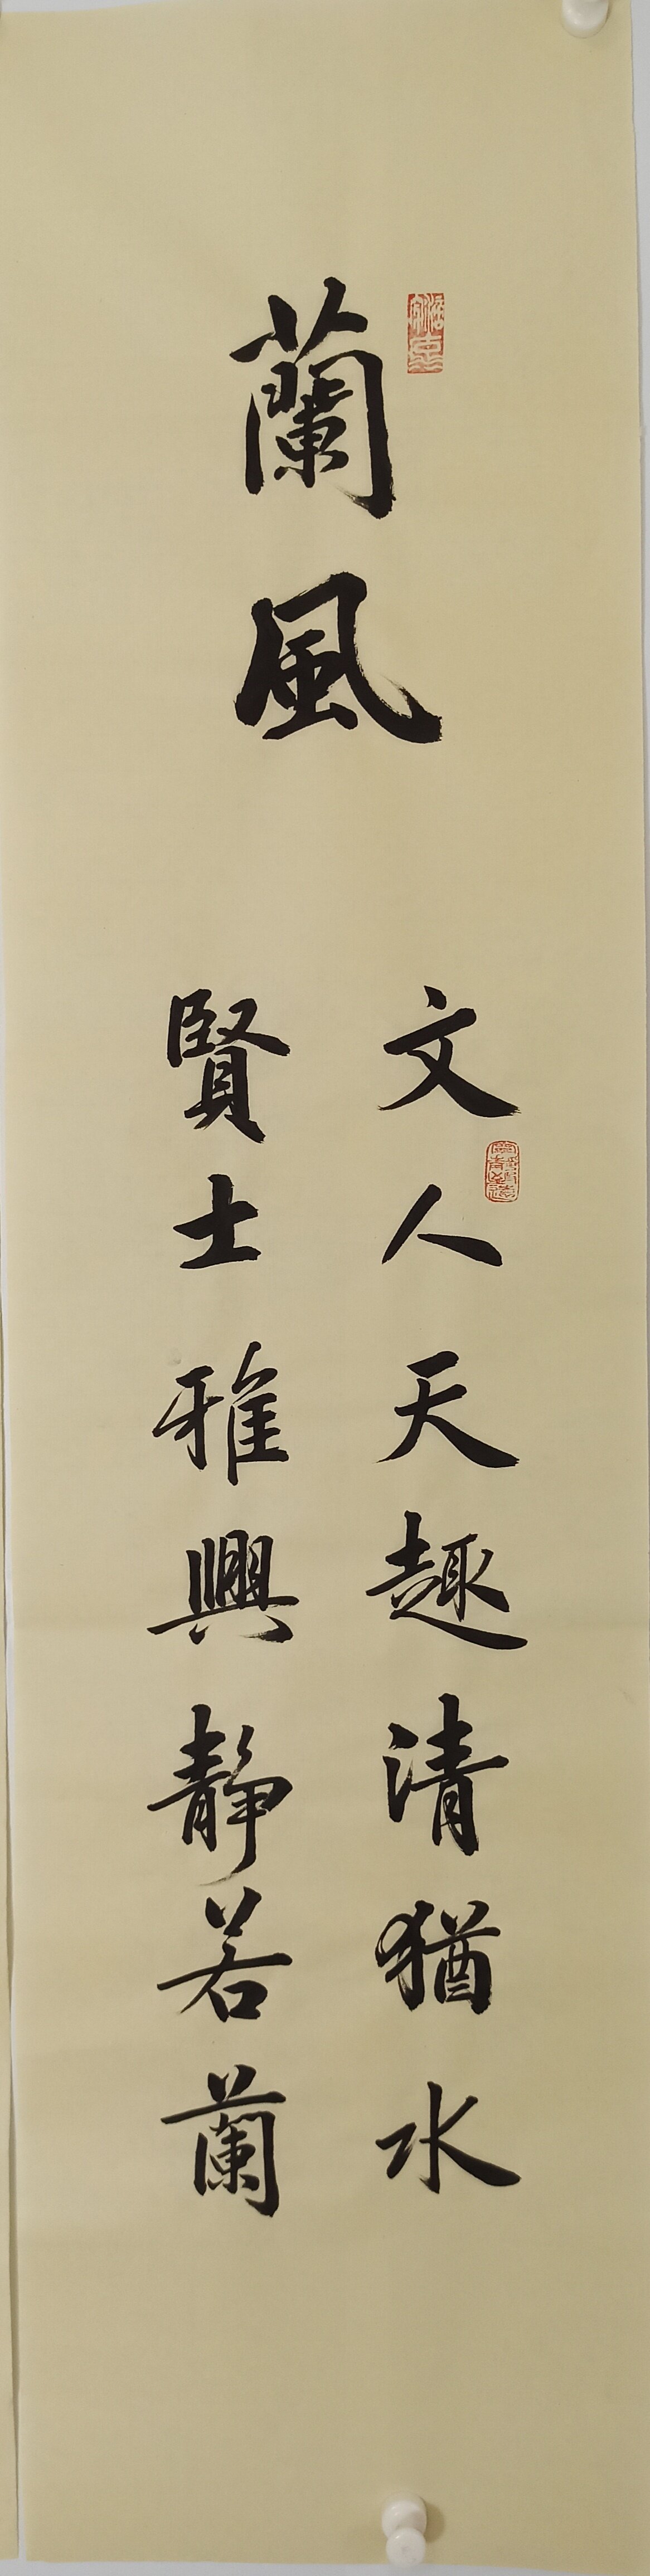 蘭風
文人天趣清猶水
賢士雅興靜若蘭